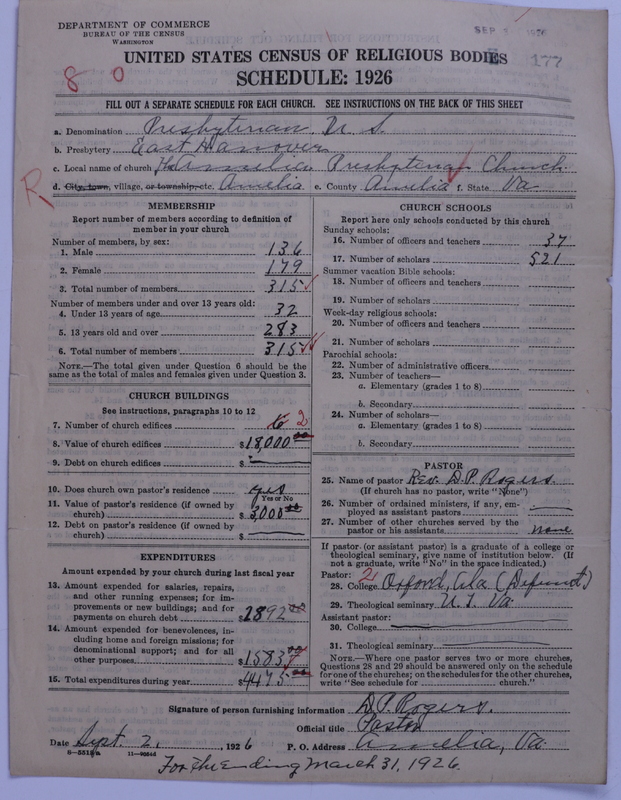 DEPARTMENT OF COMMERCE
BUREAU OF THE CENSUS
WASHINGTON
SEP 1926
177
8 0
UNITED STATES CENSUS OF RELIGIOUS BODIES
SCHEDULE: 1926
FILL OUT A SEPARATE SCHEDULE FOR EACH CHURCH. SEE INSTRUCTIONS ON THE BACK OF THIS SHEET
a. Denomination Presbyterian U. S.
b. Presbytery East Hanover
c. Local name of church Amelia Presbyterian Church
R
d. City, town, village, or township, etc. Amelia e. County Amelia f. State Va
MEMBERSHIP
Report number of members according to definition of
member in your church
Number of members, by sex:
1. Male 136
2. Female 179
3. Total number of members 315
Number of members under and over 13 years old:
4. Under 13 years of age 32
5. 13 years old and over 283
6. Total number of members 315
NOTE.—The total given under Question 6 should be
same as the total of males and females given under Question 3.
CHURCH BUILDINGS
See instructions, paragraphs 10 to 12
7. Number of church edifices 2
8. Value of church edifices $18,000 00
9. Debt on church edifices $
10. Does church own pastor's residence yes
Yes or No
11. Value of pastor's residence (if owned by
church) $3,000 00
12. Debt on pastor's residence (if owned by
church) $
EXPENDITURES
Amount expended by your church during last fiscal year
13. Amount expended for salaries, repairs,
and other running expenses; for im-
provements or new buildings; and for
payments on church debt $2892
14. Amount expended for benevolences, in-
cluding home and foreign missions; for
denominational support; and for all
other purposes $1583
15. Total expenditures during year $4475 00
CHURCH SCHOOLS
Report here only schools conducted by this church
Sunday schools:
16. Number of officers and teachers 37
17. Number of scholars 521
Summer vacation Bible schools:
18. Number of officers and teachers
19. Number of scholars
Week-day religious schools:
20. Number of officers and teachers
21. Number of scholars
Parochial schools:
22. Number of administrative officers
23. Number of teachers—
a. Elementary (grades 1 to 8)
b. Secondary
24. Number of scholars—
a. Elementary (grades 1 to 8)
b. Secondary
PASTOR
25. Name of pastor Rev. D. P. Rogers.
(If church has no pastor, write "None")
26. Number of ordained ministers, if any, em-
ployed as assistant pastors
27. Number of other churches served by the
pastor or his assistants none
If pastor (or assistant pastor) is a graduate of a college or
theological seminary, give name of institution below. (If
not a graduate, write "No" in the space indicated.)
Pastor: 2
28. College Oxford, Ala (Defunct)
29. Theological seminary U. S. Va
Assistant pastor:
30. College
31. Theological seminary
NOTE.—Where one pastor serves two or more churches,
Questions 28 and 29 should be answered only on the schedule
for one of the churches; on the schedules for the other churches,
write "See schedule for church."
Signature of person furnishing information D. P. Rogers.
Official title Pastor
Date Sept. 2, 1926 P. O. Address Amelia, Va.
For Yr Ending March 31, 1926.